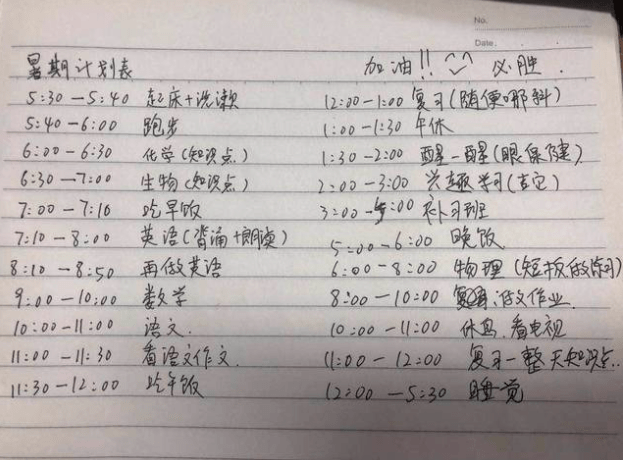 No.
Date.
暑期计划表
加油!! 必胜.
5:30-5:40 起床+洗漱
5:40-6:00 跑步
6:00-6:30 化学(知识点)
6:30-7:00 生物(知识点)
7:00-7:10 吃早饭
7:10-8:00 英语(背诵+朗读)
8:10-8:50 再做英语
9:00-10:00 数学
10:00-11:00 语文.
11:00-11:30 看语文作文.
11:30-12:00 吃午饭
12:00-1:00 复习(随便哪科)
1:00-1:30 午休
1:30-2:00 醒一醒(眼保健)
2:00-3:00 兴趣学习(吉它)
3:00-5:00 补习班
5:00-6:00 晚饭
6:00-8:00 物理(短板的练习)
8:00-10:00 做作业.
10:00-11:00 休息.看电视
11:00-12:00 复习一整天知识点..
12:00-5:30 睡觉